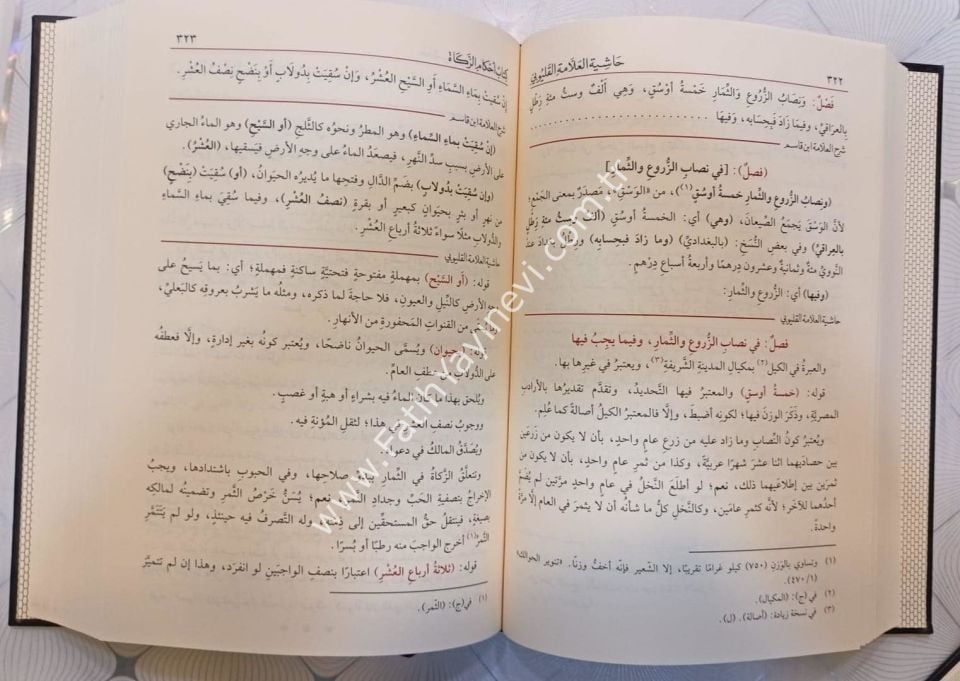 ٣٢٢
حَاشِيَة العَلَّامَة القَليُوبي
فَصْلٌ: وَنِصَابُ الزُّرُوعِ وَالثِّمَارِ خَمْسَةُ أَوْسُقٍ، وَهِيَ أَلْفٌ وَسِتُّ مِئَةِ رَطْلٍ
بِالعِرَاقِيِّ، وَفِيمَا زَادَ فَبِحِسَابِهِ، وَفِيهَا . . . . . . . . . . . . . . . . . . . . . . . . . .
شرح العلامة ابن قاسم
(فصلٌ): [في نصابِ الزُّروعِ والثِّمارِ]
(ونصابُ الزُّروعِ والثِّمارِ خمسةُ أوسُقٍ(١))، من «الوَسْقِ»، مَصْدَرٌ بمعنى الجَمْعِ؛
لأنَّ الوَسْقَ يَجمَعُ الصِّيعانَ، (وهي) أي: الخمسةُ أوسُقٍ (ألفٌ وستُّ مئةِ رَطْلٍ
بالعِراقيِّ) وفي بعضِ النُّسَخِ: (بالبغداديِّ) (وما زادَ فبحسابِه) ورَطْلُ بغدادَ عندَ
النَّوويِّ مئةٌ وثمانيةٌ وعشرون دِرهمًا وأربعةُ أسباعِ دِرْهمٍ.
(وفيها) أي: الزُّروعِ والثِّمارِ:
حاشية العلامة القليوبي
فصلٌ: في نصابِ الزُّروعِ والثِّمارِ، وفيما يجبُ فيها
والعبرةُ في الكيلِ(٢) بمكيالِ المدينةِ الشَّريفةِ(٣)، ويعتبرُ في غيرِها بها.
قوله: (خمسةُ أوسقٍ) والمعتبرُ فيها التَّحديدُ، وتقدَّم تقديرُها بالأرادبِ
المصريَّةِ، وذَكَرَ الوزنَ فيها؛ لكونِه أضبطَ، وإلَّا فالمعتبرُ الكيلُ أصالةً كما عُلِمَ.
ويُعتبرُ كونُ النِّصابِ وما زاد عليه من زرعِ عامٍ واحدٍ، بأن لا يكون من زَرعَينِ
بين حصادَيهما اثنا عشرَ شهرًا عربيَّةً، وكذا من ثمرِ عامٍ واحدٍ، بأن لا يكون من
ثمرَينِ بين إطلاعَيهما ذلك، نعم؛ لو أَطلَعَ النَّخلُ في عامٍ واحدٍ مرَّتين لم يُضَمَّ
أحدُهما للآخرِ؛ لأنَّه كثمرِ عامَين، وكالنَّخلِ كلُّ ما شأنُه أن لا يثمرَ في العامِ إلَّا مرَّةً
واحدةً.
(١) وتساوي بالوزنِ (٧٥٠) كيلو غرامًا تقريبًا، إلا الشَّعير فإنَّه أخفُّ وزنًا. «تنوير الحوالك»
(١/٤٧٠).
(٢) في (ج): (المكيال).
(٣) في نسخة زيادة: (أصالة). (ل).
كتاب أحكام الزكاة
٣٢٣
إِنْ سُقِيَتْ بِمَاءِ السَّمَاءِ أَوِ السَّيْحِ العُشْرُ، وَإِنْ سُقِيَتْ بِدُولَابٍ أَوْ بِنَضْحٍ نِصْفُ العُشْرِ.
شرح العلامة ابن قاسم
(إنْ سُقِيَتْ بماءِ السَّماءِ) وهو المطرُ ونحوُه كالثَّلجِ (أو السَّيْحِ) وهو الماءُ الجاري
على الأرضِ بسببِ سدِّ النَّهرِ، فيصعَدُ الماءُ على وجهِ الأرضِ فيَسقيها، (العُشْرُ).
(وإن سُقِيَتْ بدُولابٍ) بضَمِّ الدَّالِ وفتحِها ما يُديرُه الحيوانُ، (أو) سُقِيَتْ (بِنَضْحٍ)
من نهرٍ أو بئرٍ بحيَوانٍ كبعيرٍ أو بقرةٍ (نصفُ العُشْرِ)، وفيما سُقِيَ بماءِ السَّماءِ
والدُّولابِ مثلًا سواءً ثلاثةُ أرباعِ العُشْرِ.
حاشية العلامة القليوبي
قوله: (أو السَّيْحِ) بمهملةٍ مفتوحةٍ فتحتيَّةٍ ساكنةٍ فمهملةٍ؛ أي: بما يَسيحُ على
وجه الأرضِ كالنِّيلِ والعيونِ، فلا حاجةَ لما ذكره، ومثلُه ما يَشربُ بعروقِه كالبَعليِّ،
من القنواتِ المَحفورةِ من الأنهارِ.
قوله: (بحيوانٍ) ويُسمَّى الحيوانُ ناضحًا، ويُعتبر كونُه بغيرِ إدارةٍ، وإلَّا فعطفُه
على الدُّولابِ من عطفِ العامِّ.
ويُلحق بهذا ما كان الماءُ فيه بشراءٍ أو هبةٍ أو غصبٍ.
ووجوبُ نصفِ العشرِ في هذا؛ لثقلِ المُؤنةِ فيه.
ويُصَدَّقُ المالكُ في دعواه.
وتتعلَّقُ الزَّكاةُ في الثِّمارِ ببدوِّ صلاحِها، وفي الحبوبِ باشتدادِها، ويجبُ
الإخراجُ بتصفيةِ الحَبِّ وجدادِ الثَّمرِ، نعم؛ يُسَنُّ خَرْصُ الثَّمرِ وتضمينُه لمالكِه
بصيغةٍ، فينتقلُ حقُّ المستحقِّين إلى ذمَّتِه، وله التَّصرفُ فيه حينئذٍ، ولو لم يَتَتَمَّرِ
الثَّمرُ(١) أخرج الواجبَ منه رطبًا أو بُسرًا.
قوله: (ثلاثةُ أرباعِ العُشْرِ) اعتبارًا بنصفِ الواجبَينِ لو انفرَد، وهذا إن لم تتميَّز
(١) في (ج): (الثمر).
www.FatihYayinevi.com.tr